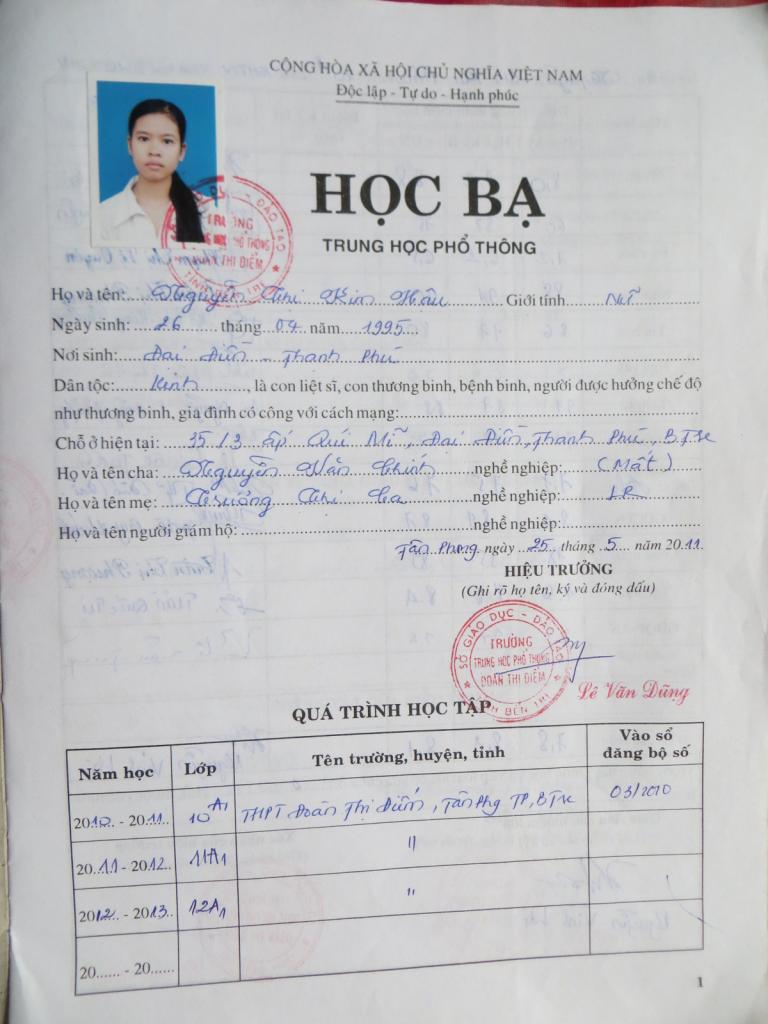 CỘNG HÒA XÃ HỘI CHỦ NGHĨA VIỆT NAM
Độc lập - Tự do - Hạnh phúc
HỌC BẠ
TRUNG HỌC PHỔ THÔNG
Họ và tên: Nguyễn Thị Kim Hậu Giới tính Nữ
Ngày sinh: 26 tháng 04 năm 1995
Nơi sinh: Đại Điền - Thạnh Phú
Dân tộc: Kinh, là con liệt sĩ, con thương binh, bệnh binh, người được hưởng chế độ
như thương binh, gia đình có công với cách mạng:
Chỗ ở hiện tại: 35/3 ấp Quí Mĩ, Đại Điền, Thạnh Phú, B.Tre
Họ và tên cha: Nguyễn Văn Chính nghề nghiệp: (Mất)
Họ và tên mẹ: Trương Thị Ca nghề nghiệp: LR
Họ và tên người giám hộ: nghề nghiệp:
Tân Phong ngày 25 tháng 5 năm 2011
HIỆU TRƯỞNG
(Ghi rõ họ tên, ký và đóng dấu)
SỞ GIÁO DỤC - ĐÀO TẠO
TRƯỜNG
TRUNG HỌC PHỔ THÔNG
ĐOÀN THỊ ĐIỂM
TỈNH BẾN TRE
Lê Văn Dũng
QUÁ TRÌNH HỌC TẬP
Năm học Lớp Tên trường, huyện, tỉnh Vào sổ đăng bộ số
2010 - 2011 10A1 THPT Đoàn Thị Điểm, Tân Phg TP, B Tre 03/2010
2011 - 2012 11A1 〃
2012 - 2013 12A1 〃
20...... - 20......
1